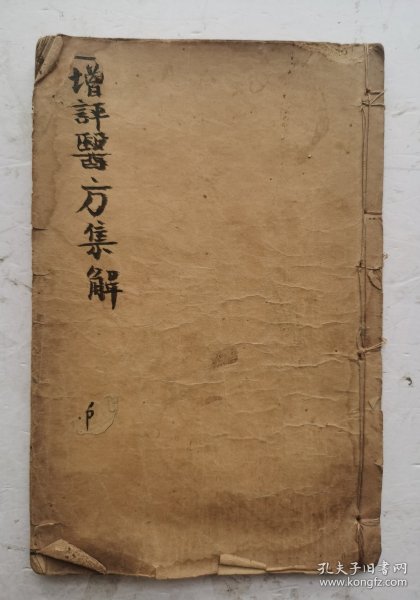 增評醫方集解
孔夫子旧书网
www.kongfz.com